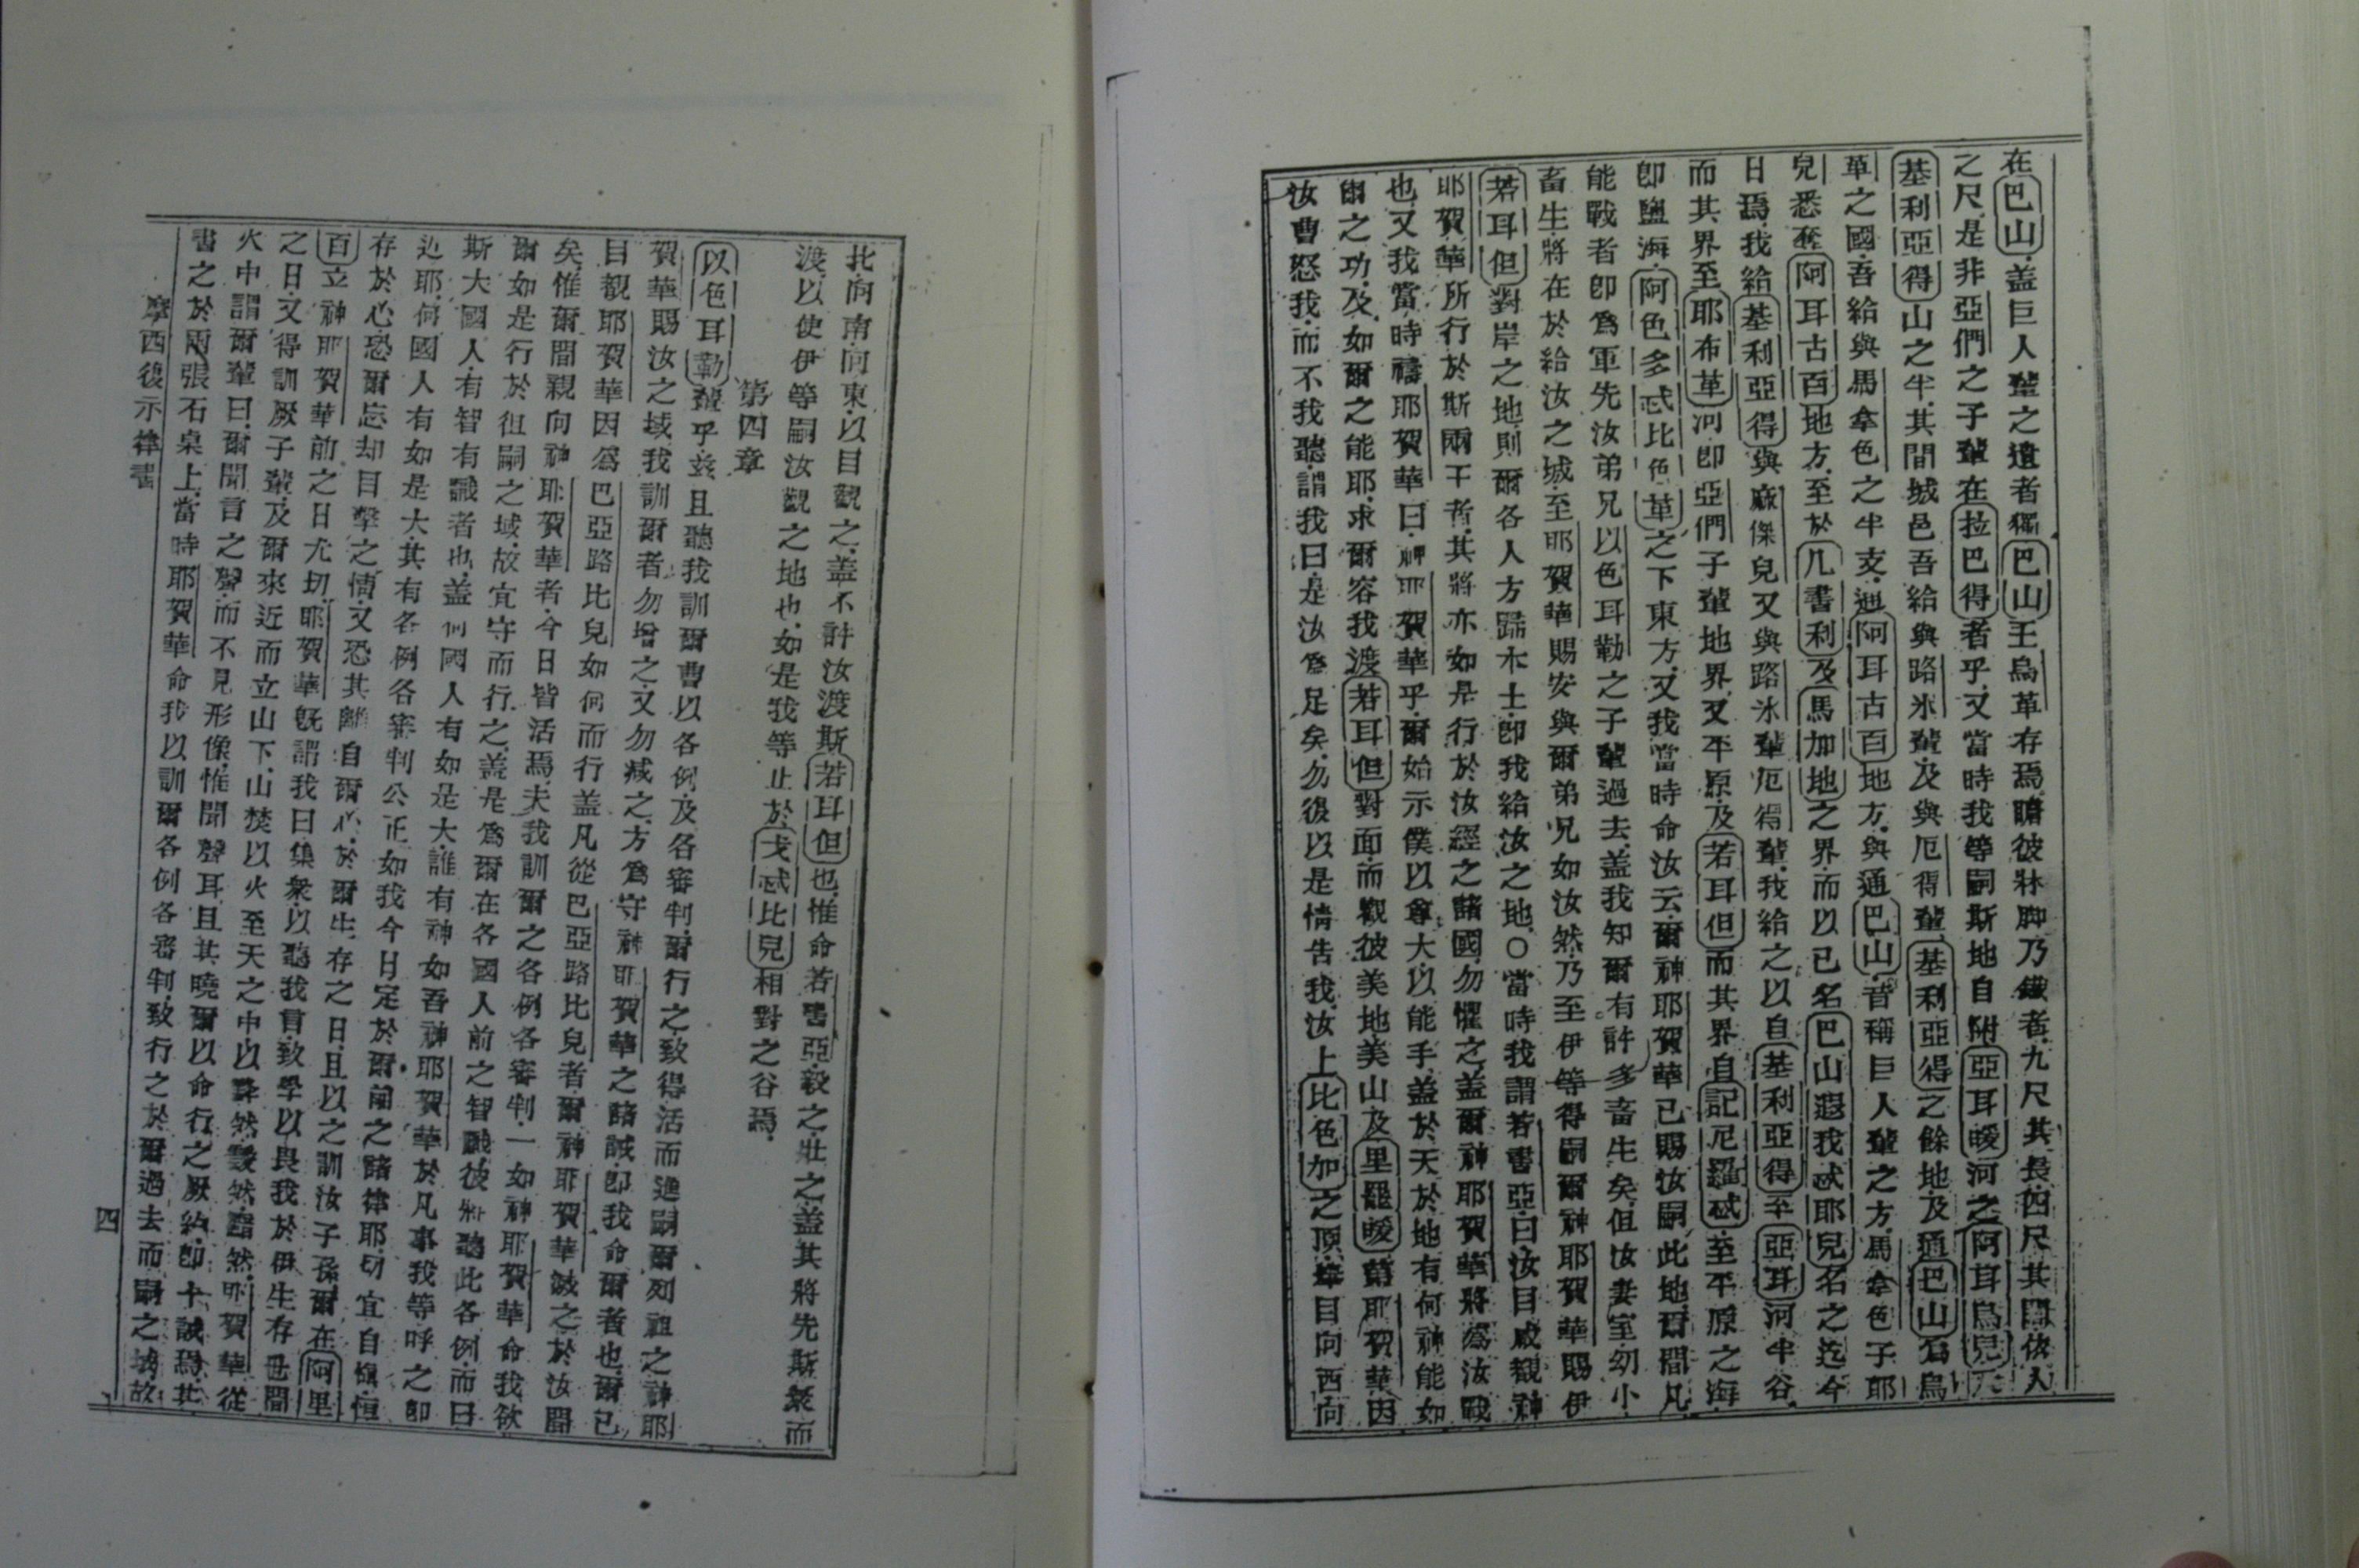 在巴山、盖巨人輩之遺者獨巴山王烏革存焉、瞻彼牀脚乃鐵者、九尺其長、四尺其闊、依人
之尺、是非亞們之子輩在拉巴得者乎、又當時我等嗣斯地自附亞耳曖河之阿耳烏兒、
基利亞得山之半、其間城邑吾給與路米輩、及與厄得輩、基利亞得之餘地、及通巴山爲烏
革之國、吾給與馬拿色之半支、通阿耳古百地方、與通巴山、昔稱巨人輩之方、馬拿色子耶
兒悉奪阿耳古百地方、至於几書利及馬加地之界、而以已名巴山遐我忒耶兒名之迄今
日焉、我給基利亞得與麻傑兒又與路氷輩厄得輩、我給之以自基利亞得至亞耳河半谷、
而其界至耶布革河、即亞們子輩地界、又平原、及若耳但而其界自記尼羅忒、至平原之海
即鹽海、阿色多忒比色革之下東方、又我當時命汝云、爾神耶賀華已賜汝嗣此地、爾間凡
能戰者即爲軍先汝弟兄以色耳勒之子輩過去、盖我知爾有許多畜生矣、但汝妻室、幼小、
畜生、將在於給汝之城、至耶賀華賜安與爾弟兄如汝然、乃至伊等得嗣爾神耶賀華賜伊
若耳但對岸之地、則爾各人方歸本土、即我給汝之地、○當時我謂若書亞、曰汝目咸觀神
耶賀華所行於斯兩王者、其將亦如是行於汝經之諸國、勿懼之、盖爾神耶賀華將爲汝戰
也、又我當時禱耶賀華曰、神耶賀華乎、爾始示僕以尊大、以能手、盖於天於地有何神能如
爾之功、及如爾之能耶、求爾容我渡若耳但對面、而觀彼美地美山及里罷曖、葢耶賀華因
汝曹怒我、而不我聽、謂我曰、是汝爲足矣、勿復以是情告我、汝上比色加之頂、舉目向西向
北、向南向東、以目觀之、盖不許汝渡斯若耳但也、惟命若書亞、毅之、壯之、盖其將先斯衆而
渡、以使伊等嗣汝觀之地也、如是我等止於戈忒比兒相對之谷焉、
第四章
以色耳勒輩乎、玆且聽我訓爾曹以各例、及各審判、爾行之、致得活而進嗣爾列祖之神耶
賀華賜汝之域、我訓爾者勿增之、又勿减之、方爲守神耶賀華之諸誡、即我命爾者也、爾已
目觀耶賀華因爲巴亞路比兒如何而行、盖凡從巴亞路比兒者、爾神耶賀華滅之於汝間
矣、惟爾間親向神耶賀華者、今日皆活焉、夫我訓爾之各例各審判、一如神耶賀華命我欲
爾如是行於徃嗣之域、故宜守而行之、盖是爲爾在各國人前之智識、彼將聽此各例、而曰
斯大國人、有智有識者也、盖何國人有如是大、誰有神如吾神耶賀華於凡事我等呼之即
近耶、何國人有如是大、其有各例各審判公正如我今日定於爾前之諸律耶、切宜自愼、恒
存於心、恐爾忘却目擊之情、又恐其離自爾心、於爾生存之日、且以之訓汝子孫、爾在阿里
百立神耶賀華前之日尤切、耶賀華旣謂我曰集衆、以聽我言、致學以畏我於伊生存世間
之日、又得訓厥子輩、及爾來近而立山下、山焚以火至天之中、以降然靉然靄然、耶賀華從
火中謂爾輩曰、爾聞言之聲、而不見形像、惟聞聲耳、且其曉爾以命行之厥約、即十誡焉、其
書之於兩張石桌上、當時耶賀華命我以訓爾各例各審判、致行之於爾過去而嗣之域、故
摩西復示律書
四